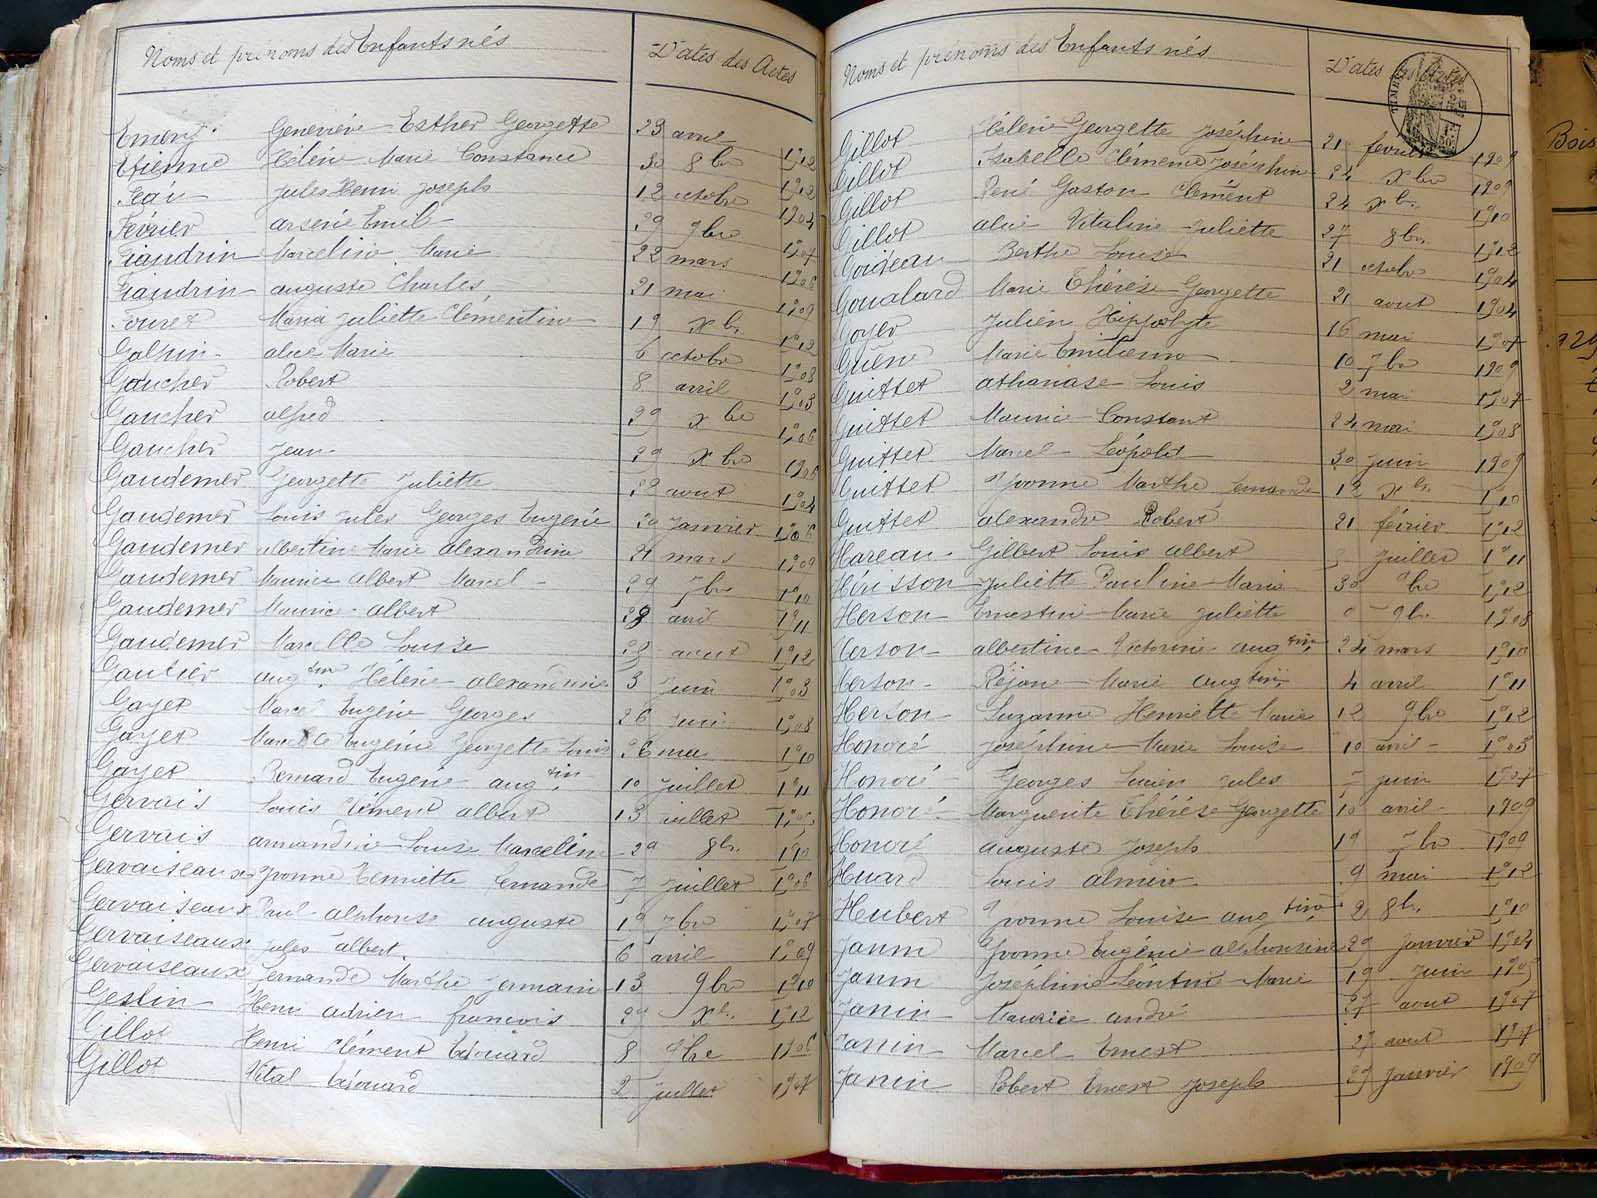 Noms et prénoms des Enfants nés Dates des Actes
Emery Geneviève Esther Georgette 23 avril 1912
Etienne Hélène Marie Constance 30 8bre 1912
Jules Henri Joseph 12 octobre 1904
Février arsène Emile 29 9bre 1907
Fiandrin Marceline Marie 22 mars 1906
Fiandrin auguste Charles 21 mai 1909
Fouret Maria Juliette Clémentine 19 xbre 1912
Galpin alice Marie 6 octobre 1908
Gaucher Robert 8 avril 1903
Gaucher alfred 29 xbre 1906
Gaucher Jean 29 xbre 1906
Gaudemer Georgette Juliette 22 aout 1904
Gaudemer Louis Jules Georges Eugène 20 Janvier 1906
Gaudemer albertine Marie alexandrine 21 mars 1909
Gaudemer Maurice albert Marcel 29 7bre 1910
Gaudemer Maurice albert avril 1911
Gaudemer Marcelle Louise aout 1912
Gautier augtine Hélène alexandrine 3 Juin 1903
Gayet Marcel Eugène Georges 26 Juin 1908
Gayet Marcelle Eugénie Georgette Louise 26 mai 1910
Gayet Bernard Eugène augtin 10 Juillet 1911
Gervais Louis Clément albert 13 juillet
Gervais armandine Louise Marceline 29 8bre
Gervaiseaux Yvonne Henriette Fernande 7 Juillet 1906
Gervaiseaux Paul alphonse auguste 19 7bre 1907
Gervaiseaux Jules albert 6 avril 1909
Gervaiseaux Fernande Marthe Germaine 13 9bre 1910
Geslin Henri adrien françois 27 xbre 1912
Gillot Henri Clément Edouard 8 9bre 1906
Gillot Vital Edouard 2 juillet 1907
Noms et prénoms des Enfants nés Dates des Actes
Gillot Hélène Georgette Joséphine 21 fevrier 1909
Gillot Isabelle Clémence Joséphine 24 xbre 1909
Gillot René Gaston Clément 24 xbre 1910
Gillot alice Vitaline Juliette 27 8bre 1912
Goideau Berthe Louise 21 octobre 1904
Goualard Marie Thérèse Georgette 21 aout 1904
Goyer Julien Hippolyte 16 mai 1907
Guène Marie Emilienne 10 7bre 1909
Guittet athanase Louis 2 mai 1907
Guittet Maurice Constant 24 mai 1908
Guittet Marcel Léopold 30 Juin 1909
Guittet Yvonne Marthe Fernande 12 xbre 1910
Guittet alexandre Robert 21 février 1912
Hareau Gilbert Louis albert Juillet 1911
Hérisson Juliette Pauline Maria 30 1912
Herson Ernestine Marie Juliette 9bre 1908
Herson albertine Victorine augtine 24 mars 1910
Herson Réjane Marie augtine 4 avril 1911
Herson Suzanne Henriette Marie 12 9bre 1912
Honoré Joséphine Marie Louise 10 avril 1903
Honoré Georges Lucien Jules juin 1907
Honoré Marguerite Thérèse Georgette 10 avril 1909
Honoré auguste Joseph 19 7bre 1909
Huard Louis almire 9 mai 1912
Hubert Yvonne Louise augtine 2 8bre 1910
Janin Yvonne Eugénie alphonsine 29 Janvier 1904
Janin Joséphine Léontine Marie 19 Juin 1905
Janin Maurice andré 27 aout 1907
Janin Marcel Ernest 27 aout 1907
Janin Robert Ernest Joseph 27 janvier 1909
Bois